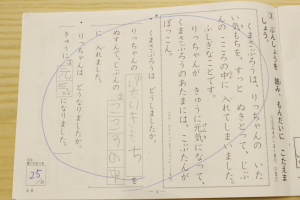 2 ぶんしょうを 読み、もんだいに こたえましょう。
くまさぶろうは、りっちゃんの いたい気もちを、すっと ぬきとって、じぶんの こころの中に 入れてしまいました。
ふしぎなことです。
りっちゃんが きゅうに元気になって、
くまさぶろうのあたまには、こぶたんが
ぽっこん。
くまさぶろうは どうしましたか。
りっちゃんの
を
ぬすんで、じぶんの こころの中
に 入れました。
りっちゃんは どうなりましたか。
きゅうに 元気 になりました。
25